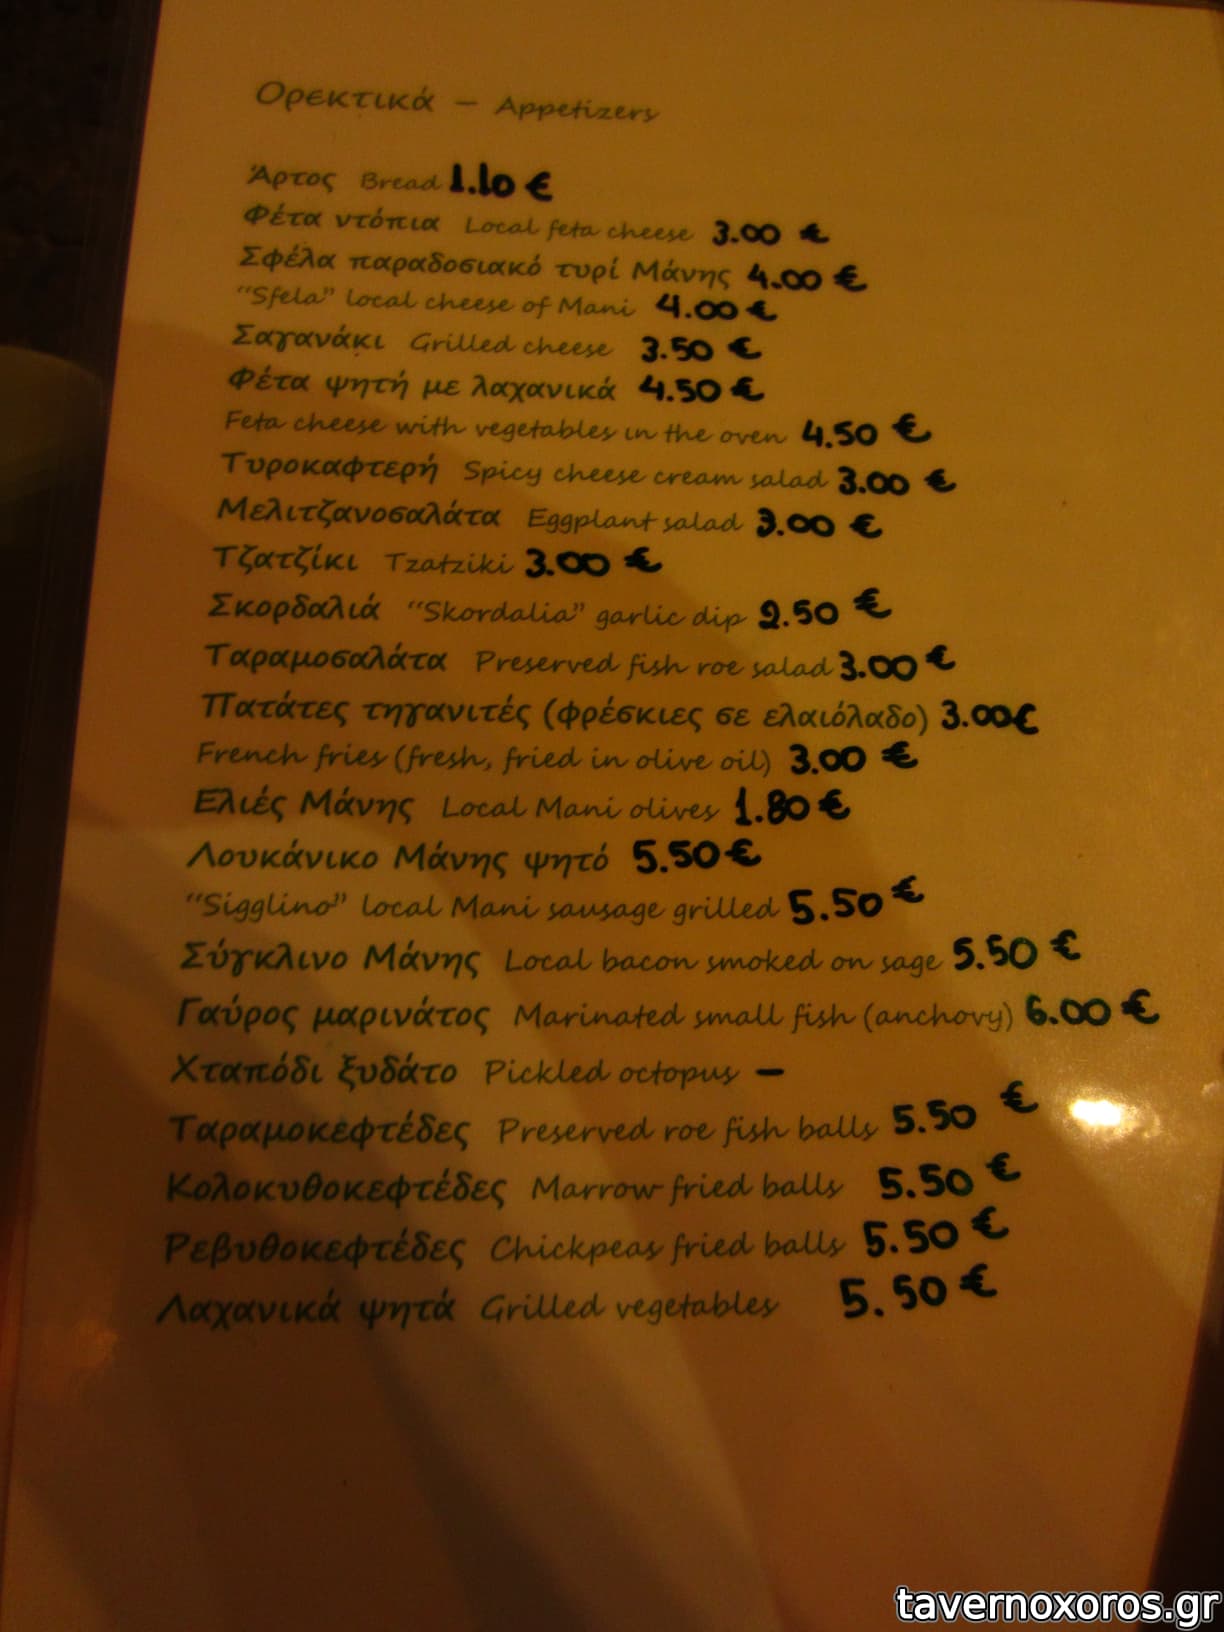 Ορεκτικά – Appetizers
Άρτος Bread 1.10 €
Φέτα ντόπια Local feta cheese 3.00 €
Σφέλα παραδοσιακό τυρί Μάνης 4.00 €
“Sfela” local cheese of Mani 4.00 €
Σαγανάκι Grilled cheese 3.50 €
Φέτα ψητή με λαχανικά 4.50 €
Feta cheese with vegetables in the oven 4.50 €
Τυροκαφτερή Spicy cheese cream salad 3.00 €
Μελιτζανοσαλάτα Eggplant salad 3.00 €
Τζατζίκι Tzatziki 3.00 €
Σκορδαλιά “Skordalia” garlic dip 2.50 €
Ταραμοσαλάτα Preserved fish roe salad 3.00 €
Πατάτες τηγανιτές (φρέσκιες σε ελαιόλαδο) 3.00€
French fries (fresh, fried in olive oil) 3.00 €
Ελιές Μάνης Local Mani olives 1.80 €
Λουκάνικο Μάνης ψητό 5.50 €
“Sigglino” local Mani sausage grilled 5.50 €
Σύγκλινο Μάνης Local bacon smoked on sage 5.50 €
Γαύρος μαρινάτος Marinated small fish (anchovy) 6.00 €
Χταπόδι ξυδάτο Pickled octopus –
Ταραμοκεφτέδες Preserved roe fish balls 5.50 €
Κολοκυθοκεφτέδες Marrow fried balls 5.50 €
Ρεβυθοκεφτέδες Chickpeas fried balls 5.50 €
Λαχανικά ψητά Grilled vegetables 5.50 €
tavernoxoros.gr